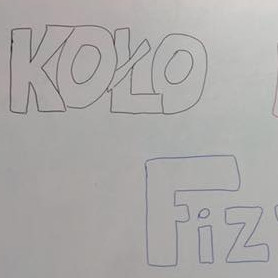 KOŁO
Fiz